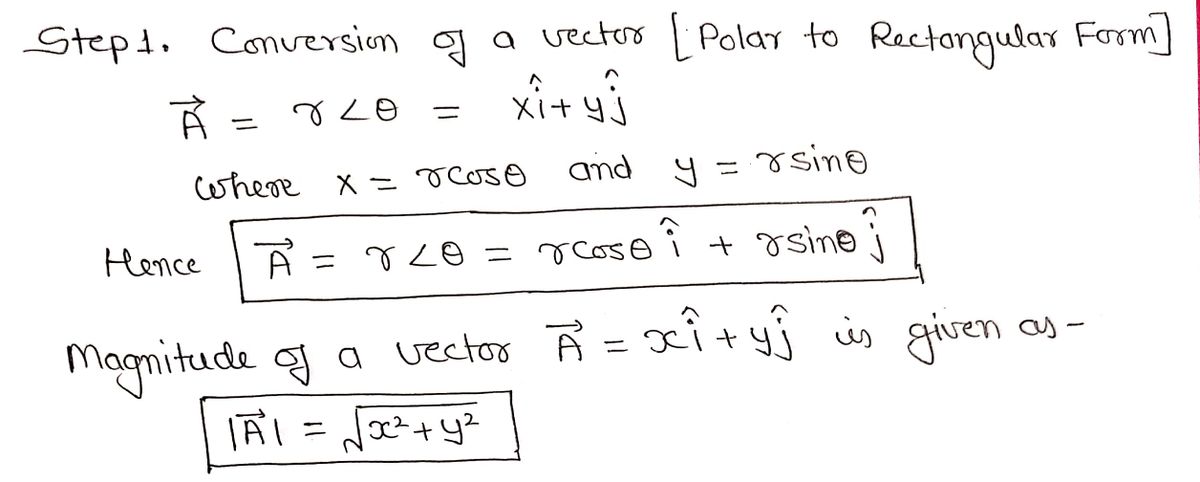 Step 1. Conversion of a vector [Polar to Rectangular Form]
A⃗ = r∠θ = xî + yĵ
where x = rcosθ and y = rsinθ
Hence A⃗ = r∠θ = rcosθ î + rsinθ ĵ
Magnitude of a vector A⃗ = xî + yĵ is given as -
|A⃗| = √x²+y²